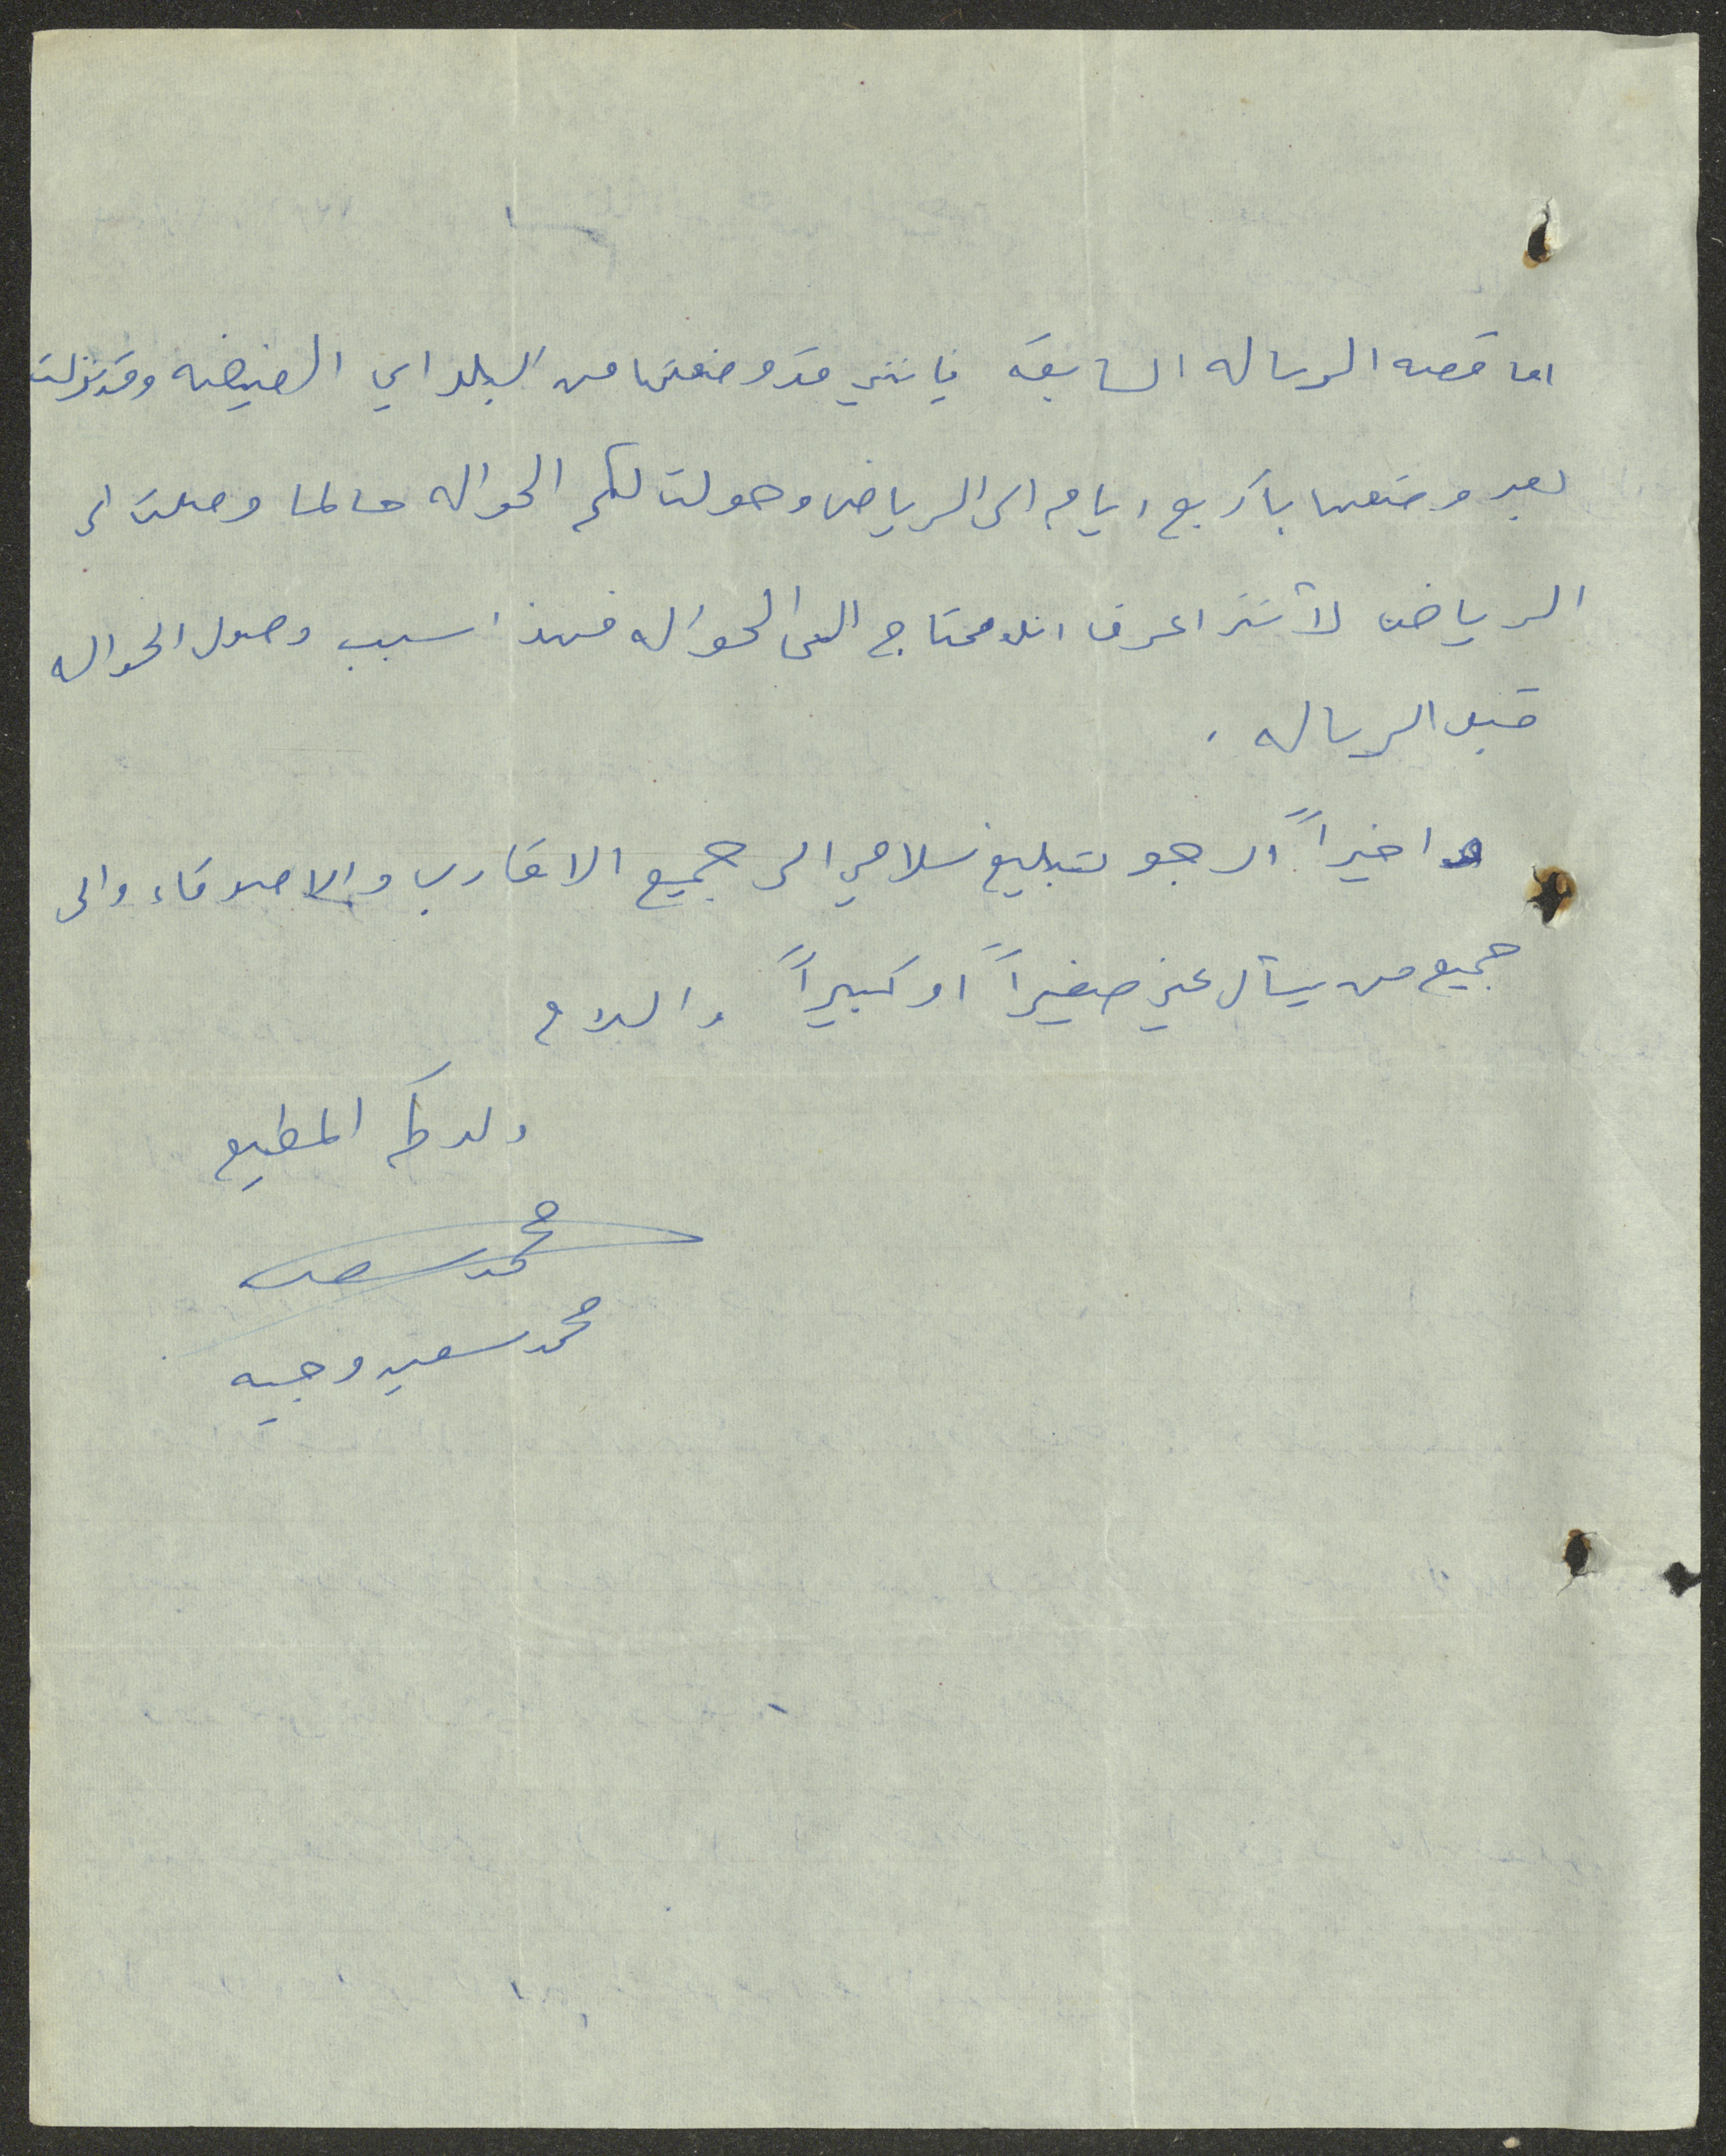 اما قصه الرساله السابقه فانني قد وضعتها من البلد اي الفيضه وقد نزلت
بعد وضعها بأربع ايام الى الرياض وحولت لكم الحواله حالما وصلت الى
الرياض لأنني اعرف انك محتاج الى الحواله فهذا سبب وصول الحواله
قبل الرساله .
واخيراً ارجو تبليغ سلامي الى جميع الاقارب والاصدقاء والى
جميع من يسأل عني صغيراً او كبيراً والسلام
ولدكم المطيع
محمد سعيد
محمد سعيد وجيه